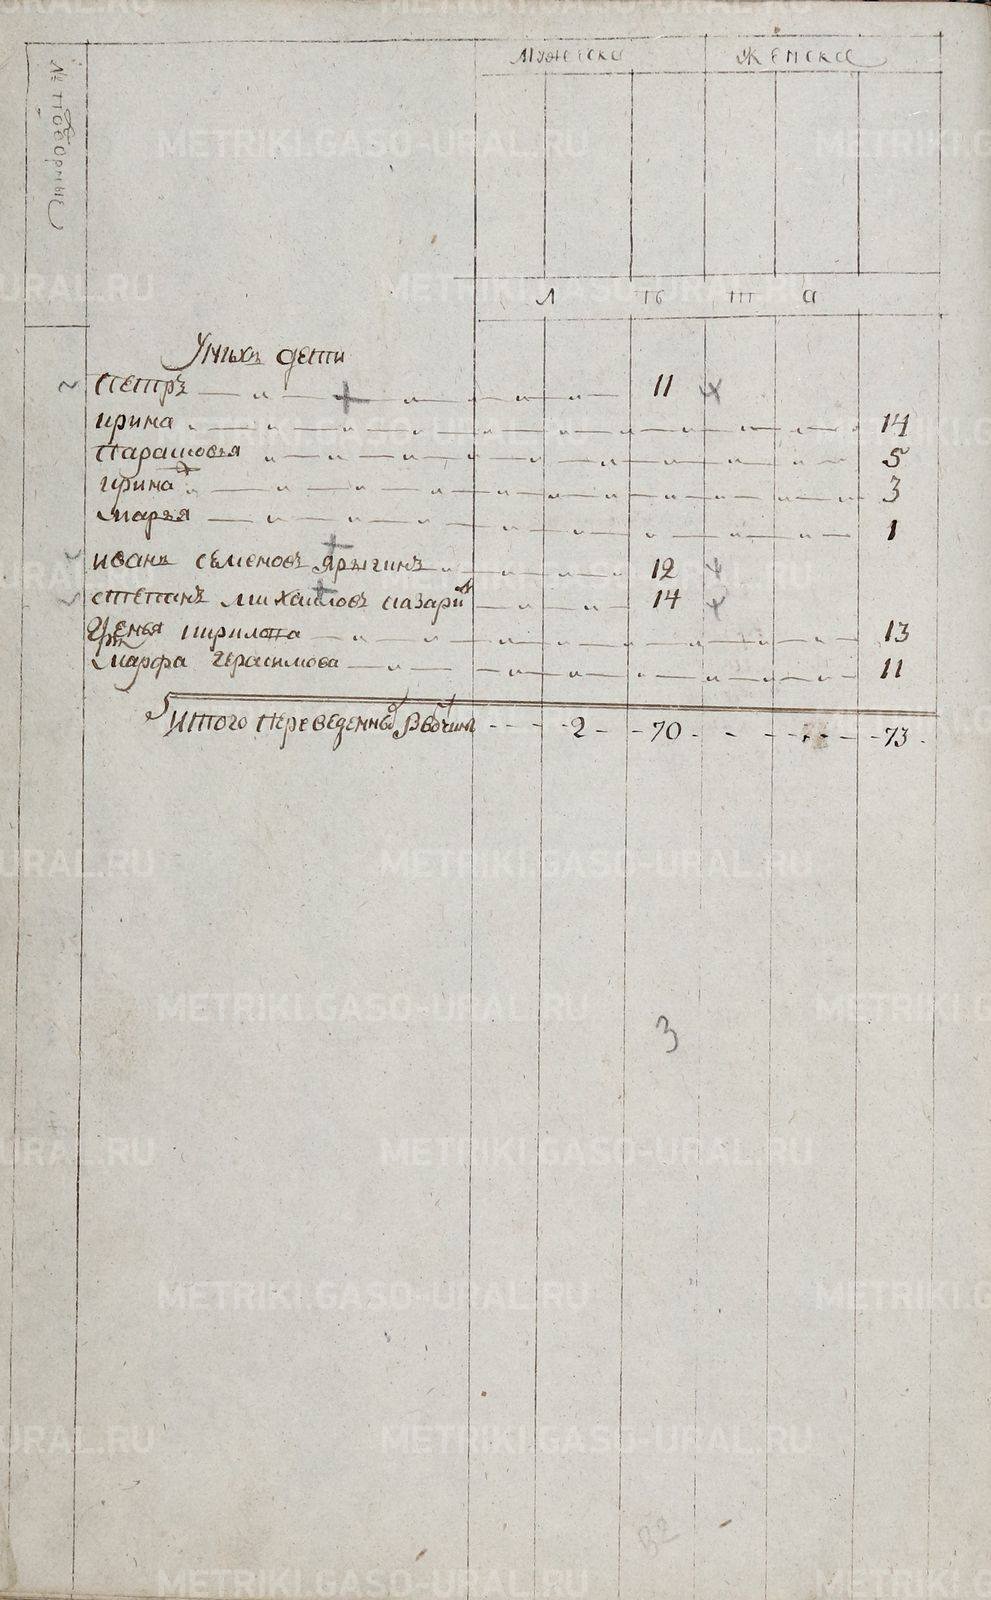 № подворные
Мужеска Женска
Л ѣ т а
У них дети
Петръ 11
ирина 14
Парасковья 5
ирина 3
Марья 1
иванъ семеновъ Ярыгинъ 12
степанъ михаиловъ 14
кирилова 13
Марфа Герасимова 11
Итого переведенны 2 70 73
3
В2
METRIKI.GASO-URAL.RU